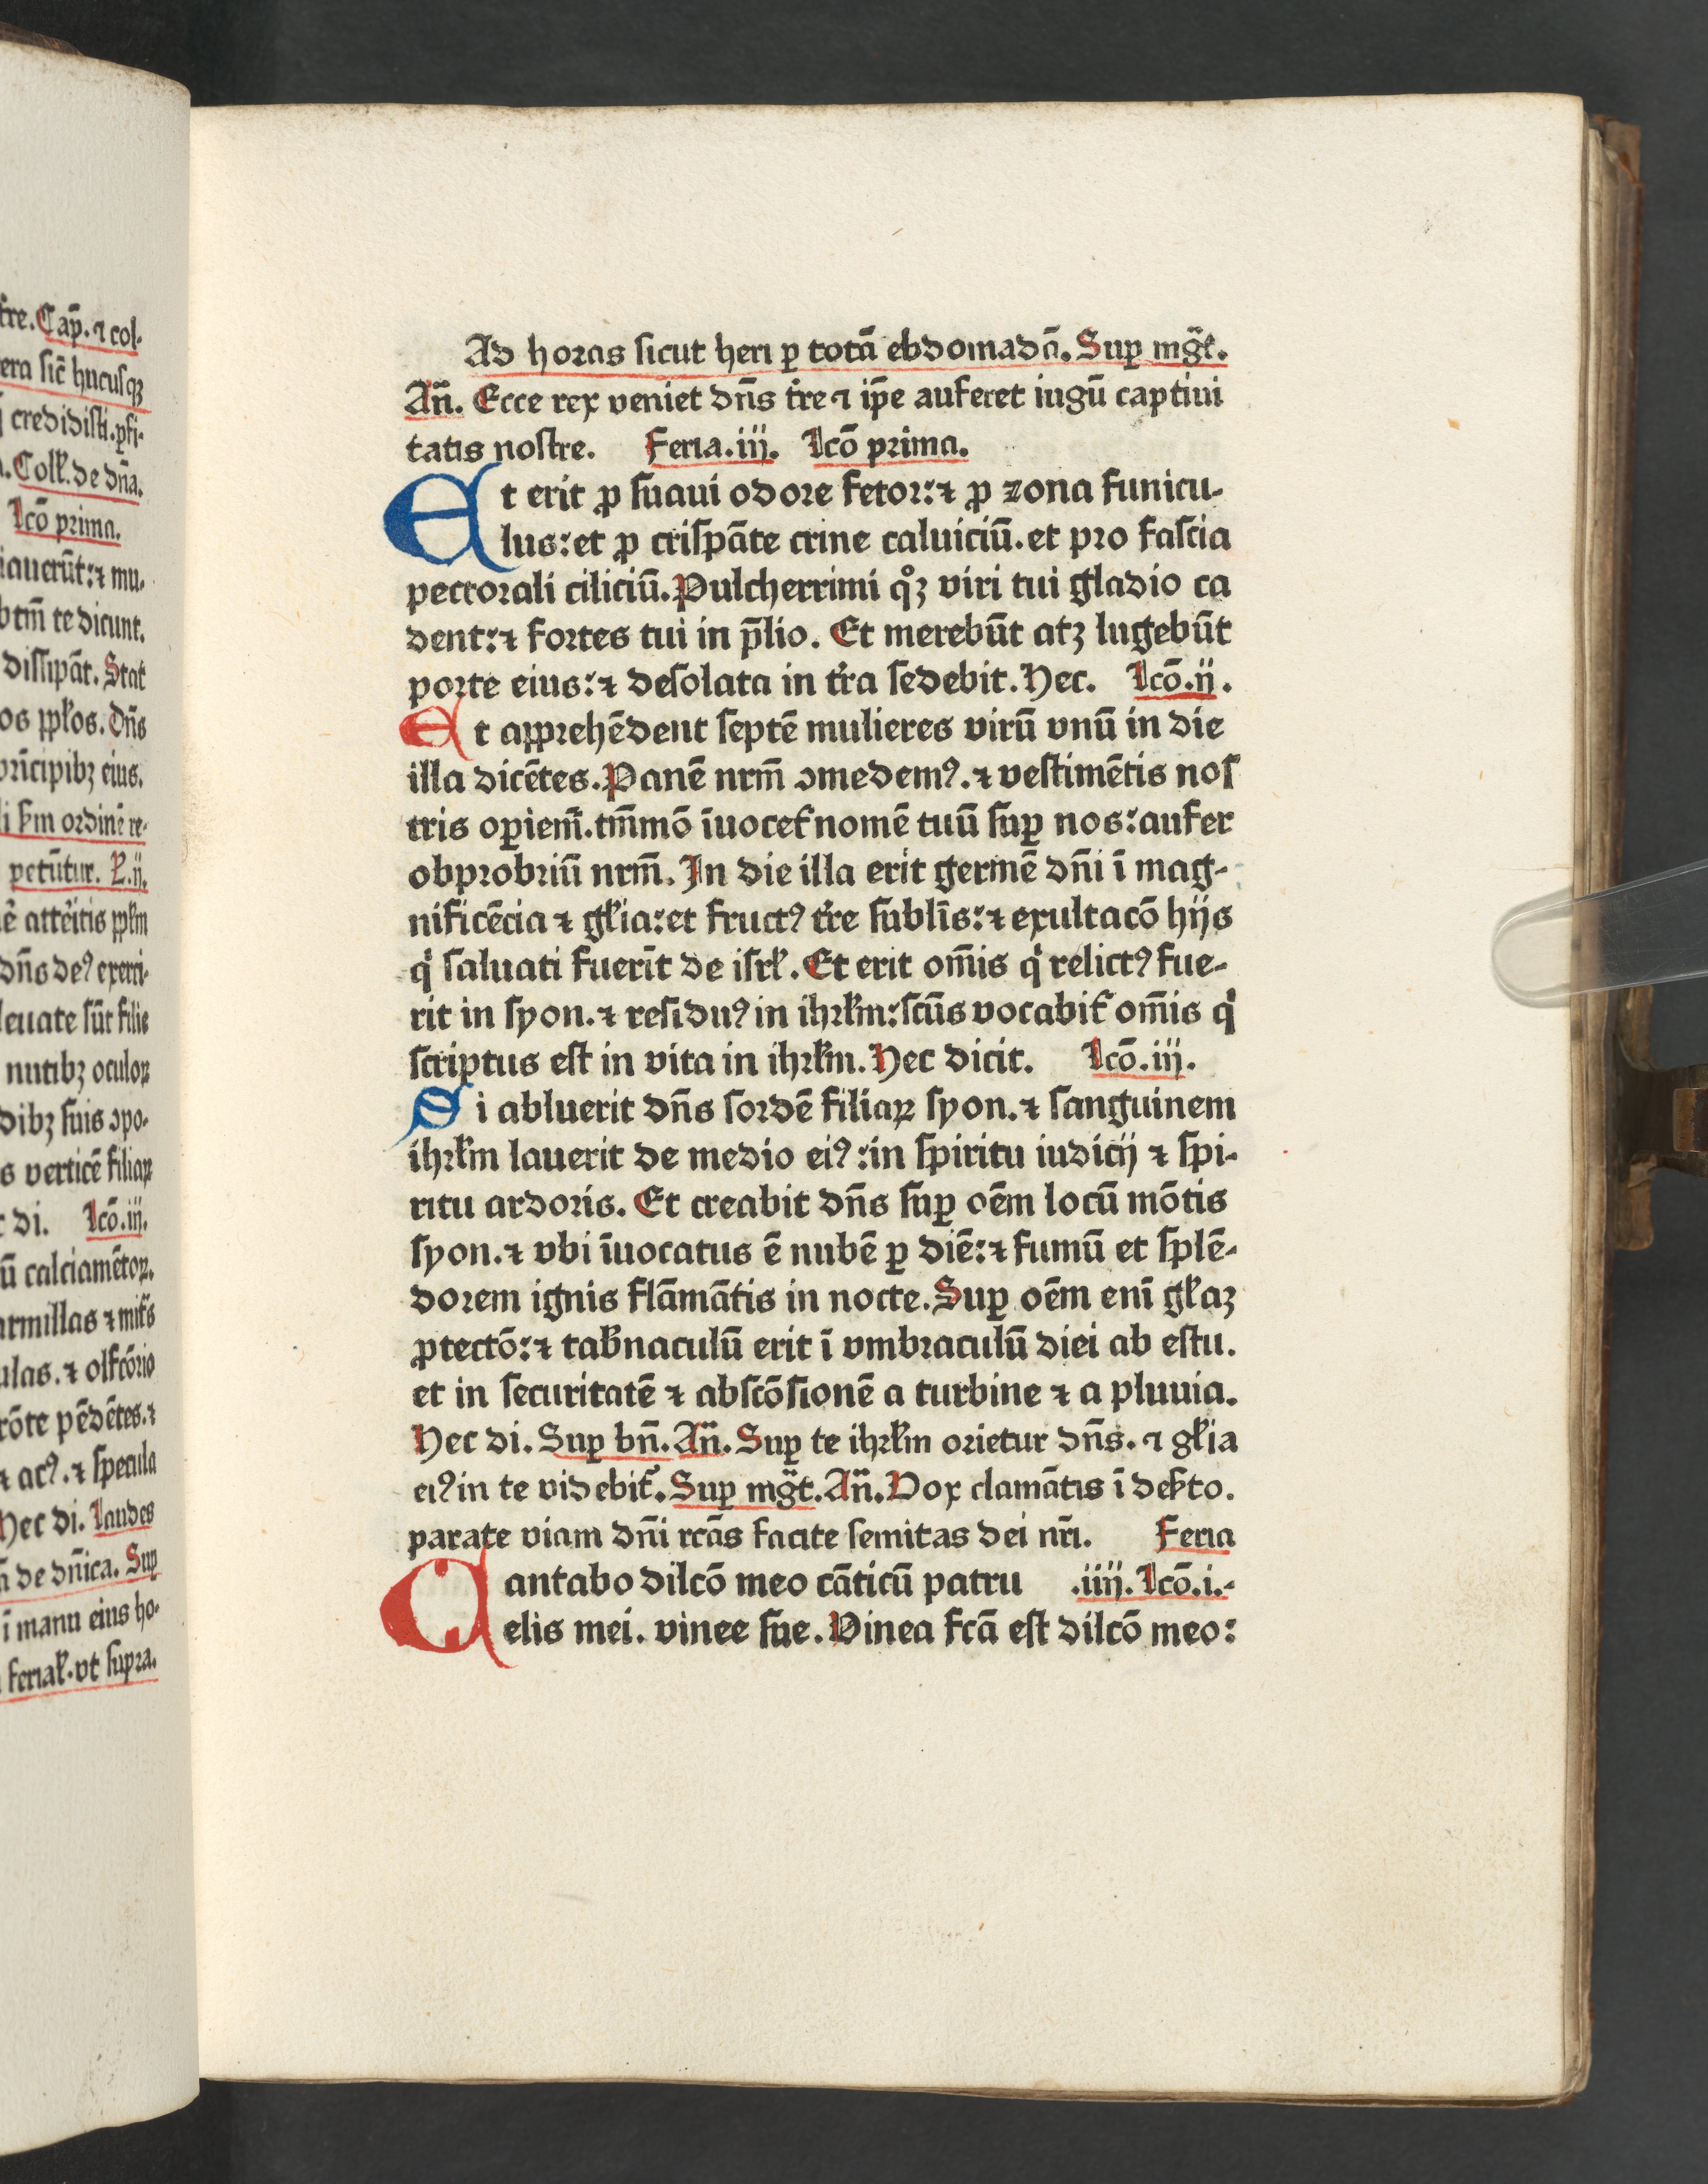 fre. Cap̄. ⁊ col-
era sic̄ hucusqꝫ
credidisti. ꝑfi-
Coll̵. de dn̄a.
Lcō prima.
iauerūt: ⁊ mu-
btm̄ te dicunt.
dissipāt. Stat
os pp̵los. Dn̄s
prīcipibꝫ eius.
li s̵m ordinē re-
petūtur. R̵. ij.
ē attēitis pp̵lm
dn̄s deꝰ exerci-
leuate sūt filie
nutibꝫ oculoꝝ
dibꝫ suis ꝯpo-
s verticē filiaꝝ
di. Lcō. iij.
ū calciamētoꝝ.
armillas ⁊ mit̄s
ulas. ⁊ olfcōrio
rōte pēdētes. ⁊
⁊ acꝰ. ⁊ specula
Hec di. Laudes
de dn̄ica. Suꝑ
ī manu eius ho-
ferial̵. vt supra.
Ad horas sicut heri ꝑ totā ebdomadā. Suꝑ mḡt.
An̄. Ecce rex veniet dn̄s t̄re ⁊ ip̄e auferet iugū captiui
tatis nostre. Feria. iij. Lcō prima.
Et erit ꝓ suaui odore fetor: ⁊ ꝓ zona funicu-
lus: et ꝓ crispāte crine caluiciū. et pro fascia
pectorali ciliciū. Pulcherrimi qͦꝫ viri tui gladio ca
dent: ⁊ fortes tui in p̄lio. Et merebūt atꝫ lugebūt
porte eius: ⁊ desolata in t̄ra sedebit. Hec. Lcō. ij.
Et apprehēdent septē mulieres virū vnū in die
illa dicētes. Panē nrm̄ ꝯmedemꝰ. ⁊ vestimētis nos
tris operiem̄. tm̄mō īuocet̄ nomē tuū suꝑ nos: aufer
obprobriū nrm̄. In die illa erit germē dn̄i ī mag-
nificēcia ⁊ gl̵ia: et fructꝰ t̄re sublīs: ⁊ exultacō hijs
qͥ saluati fuerīt de isrl̵. Et erit om̄is qͥ relictꝰ fue-
rit in syon. ⁊ residuꝰ in ihrl̵m: scūs vocabit̄ om̄is qͥ
scriptus est in vita in ihrl̵m. Hec dicit. Lcō. iij.
Si abluerit dn̄s sordē filiaꝝ syon. ⁊ sanguinem
ihrl̵m lauerit de medio eiꝰ: in spiritu iudicij ⁊ spi-
ritu ardoris. Et creabit dn̄s suꝑ oēm locū mōtis
syon. ⁊ vbi īuocatus ē nubē ꝑ diē: ⁊ fumū et splē-
dorem ignis flāmātis in nocte. Suꝑ oēm eni̅ gl̵aꝫ
ꝓtectō: ⁊ tab̵naculū erit ī vmbraculū diei ab estu.
et in securitatē ⁊ abscōsionē a turbine ⁊ a pluuia.
Hec di. Suꝑ bn̄. An̄. Suꝑ te ihrl̵m orietur dn̄s. ⁊ gl̵ia
eiꝰ in te videbit̄. Suꝑ mḡt. An̄. Vox clamātis ī des̵to.
parate viam dn̄i rcās facite semitas dei nr̄i. Feria
Cantabo dilcō meo cāticū patru .iiij. Lcō. i.-
elis mei. vinee sue. Vinea fcā est dilcō meo: